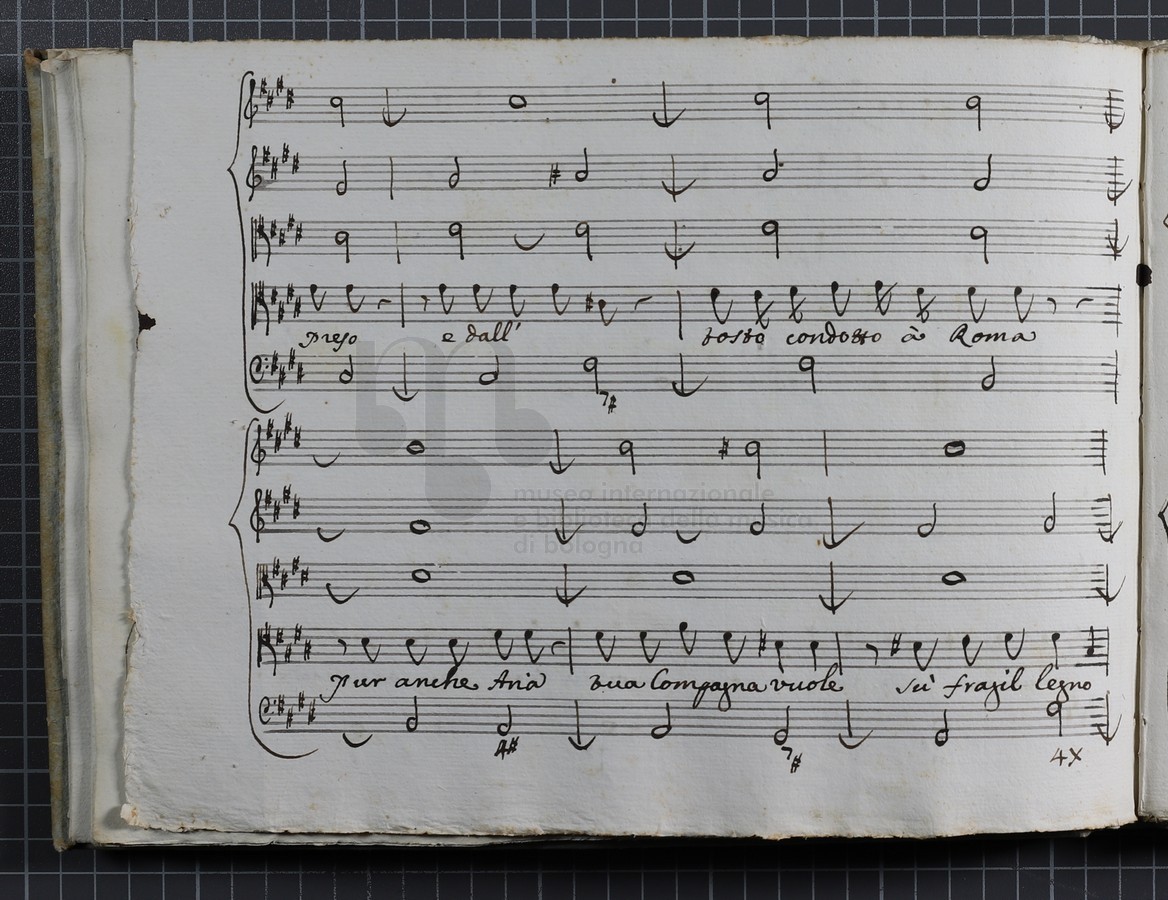 preso e dall' tosto condotto à Roma
7#
museo internazionale
e biblioteca della musica
di bologna
pur anche Aria tua Compagna vuole sù fragil legno
4# 7# 4X